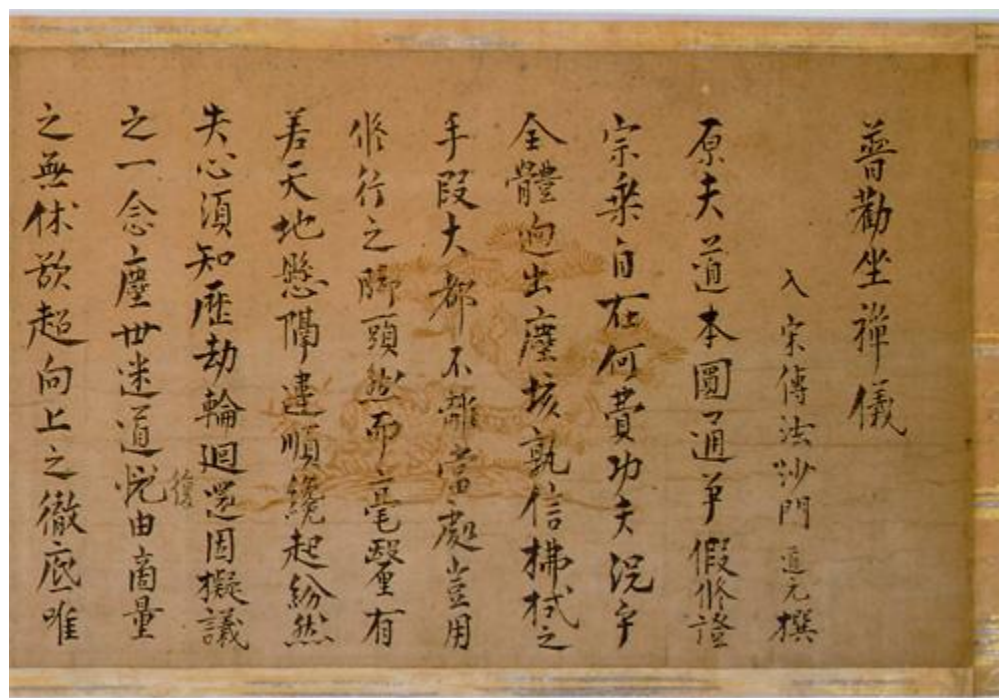 普勸坐禪儀
入宋傳法沙門道元撰
原夫道本圓通爭假修證
宗乘自在何費功夫況乎
全體逈出塵垓孰信拂拭之
手段大都不離當處豈用
修行之脚頭然而毫釐有
差天地懸隔違順纔起紛然
失心須知歷劫輪迴還因擬議
之一念塵世迷道復由商量
之無休欲超向上之徹底唯